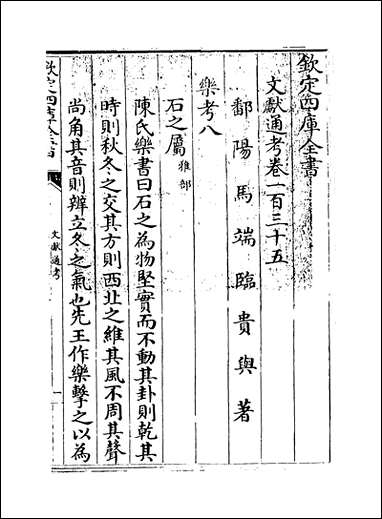 欽定四庫全書
文獻通考卷一百三十五
鄱陽馬端臨貴與著
樂考八
石之屬雅部
陳氏樂書曰石之為物堅實而不動其卦則乾其
時則秋冬之交其方則西北之維其風不周其聲
尚角其音則辨立冬之氣也先王作樂擊之以為
欽定四庫全書
文獻通考
一